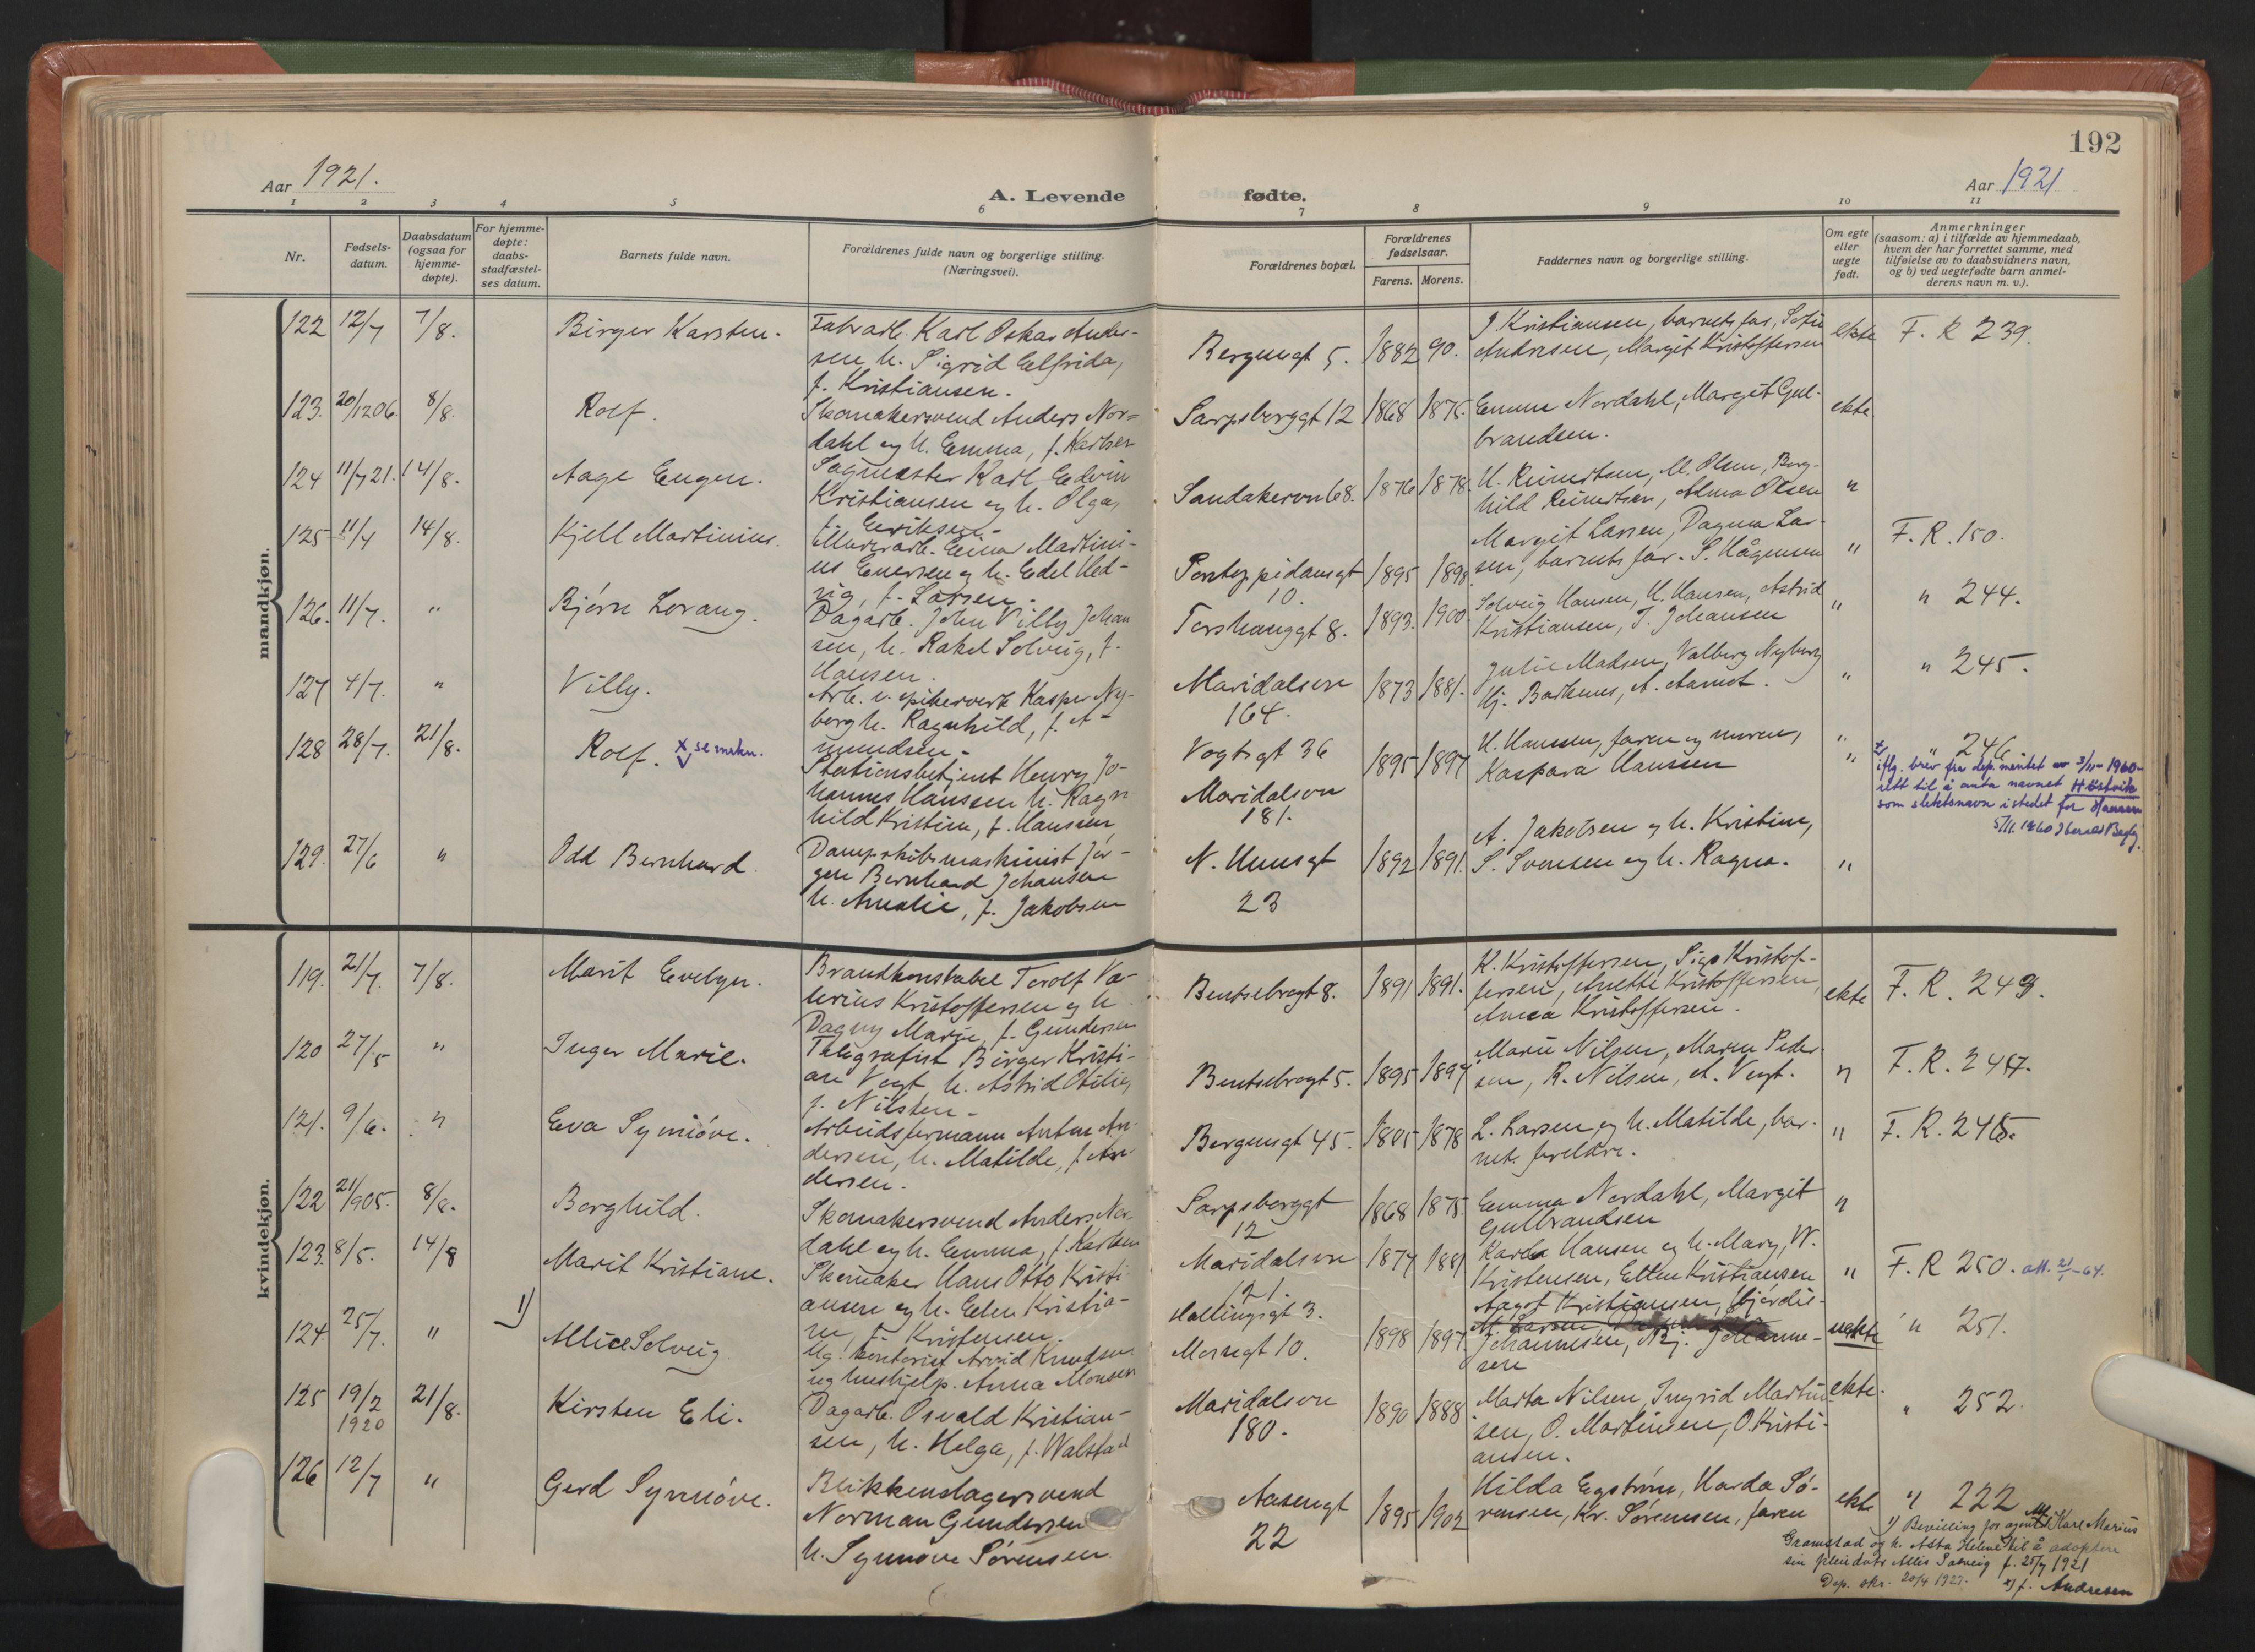 192
Aar 1921.
A. Levende
fødte.
Aar 1921
1 2 3 4 5 6 7 8 9 10 11
Nr.
Fødsels-
datum.
Daabsdatum
(ogsaa for
hjemme-
døpte).
For hjemme-
døpte:
daabs-
stadfæstel-
ses datum.
Barnets fulde navn.
Forældrenes fulde navn og borgerlige stilling.
(Næringsvei).
Forældrenes bopæl.
Forældrenes
fødselsaar.
Farens. Morens.
Faddernes navn og borgerlige stilling.
Om egte
eller
uegte
født.
Anmerkninger
(saasom: a) i tilfælde av hjemmedaab,
hvem der har forrettet samme, med
tilføielse av to daabsvidners navn,
og b) ved uegtefødte barn anmel-
derens navn m. v.).
mandkjøn.
122 12/7 7/8. Birger Karsten.
Fabrarb. Karl Oskar Ander-
sen h. Sigrid Elfrida,
f. Kristiansen.
Bergensgt 5. 1882 90.
J Kristiansen, barnets far, Sofie
Andresen, Margit Kristoffersen
ekte F. R 239.
123. 20/12 06. 8/8. Rolf.
Skomakersvend Anders Nor-
dahl og h. Emma, f. Karlsen
Sarpsborggt 12 1868 1875.
Emma Nordahl, Margit Gul-
brandsen.
ekte
124 11/7 21. 14/8. Aage Eugen.
Sagmester Karl Edvin
Kristiansen og h. Olga,
f. Eriksen.
Sandakervn 68. 1876 1878.
H. Reinertsen, M. Olsen, Borg-
hild Reinertsen, Alma Olsen
"
125 11/4 14/8. Kjell Martinius.
Murerarb. Einar Martini-
us Enersen og h. Edel Hed-
vig, f. Larsen.
Pontoppidansgt
10.
1895 1898
Margit Larsen, Dagma Lar-
sen, barnets far. S. Hågensen
" F. R. 150.
126. 11/7. " Bjørn Lorang.
Dagarb. John Villy Johan
sen, h. Rakel Solveig, f.
Hansen.
Torshauggt 8. 1893. 1900.
Solveig Hansen, H. Hansen, Astrid
Kristiansen, J. Johansen
" " 244.
127 4/7. " Villy.
Arb. v. spikerverk Kasper Ny-
berg h. Ragnhild, f. A-
mundsen.
Maridalsvn
164.
1873 1881.
Julie Madsen, Valborg Nyberg
Hj. Barkenes, A. Aamot.
" " 245.
128 28/7. 21/8. Rolf. x se mrkn.
Stationsbetjent Henry Jo-
hannes Hansen h. Ragn
hild Kristine, f. Hansen
Vogtsgt 36
Maridalsvn
181.
1895 1897
H. Hansen, faren og moren,
Kaspara Hansen
" " 246
x iflg. brev fra dep. mentet av 3/11-1960-
rett til å anta navnet Höstvik
som slektsnavn istedet for Hansen
5/11. 1960
129. 27/6 " Odd Bernhard.
Dampskibsmaskinist Jør-
gen Bernhard Johansen
h. Amalie, f. Jakobsen
N. Huusgt
23
1892 1891.
A. Jakobsen og h. Kristine,
S. Svensen og h. Ragna.
"
kvindekjøn.
119. 21/7. 7/8. Marit Evelyn.
Brandkonstabel Torolf Va-
lerius Kristoffersen og h
Dagny Marie, f. Gundersen
Bentsebrogt 8. 1891 1891.
K. Kristoffersen, Sign Kristof-
fersen, Anette Kristoffersen,
Anna Kristoffersen.
ekte F. R. 249.
120 27/5 " Inger Marie.
Telegrafist Birger Kristi-
an Vogt, h. Astrid Otilie,
f. Nilsen.
Bentsebrogt 5. 1895 1897
Marie Nilsen, Maren Peder-
sen, R. Nilsen, A. Vogt.
" F. R. 247.
121. 9/6. " Eva Synnöve.
Arbeidsformann Anton An-
dersen, h. Matilde, f. An-
dersen.
Bergensgt 45. 1885 1878
L. Larsen og h. Matilde, bar-
nets foreldre.
" F. R. 248.
122 21/9 05. 8/8. Borghild.
Skomakersvend Anders Nor-
dahl og h. Emma, f. Karlsen
Sarpsborggt
12
1868 1875
Emma Nordahl, Margit
Gulbrandsen
"
123. 8/5. 14/8 Marit Kristiane.
Skomaker Hans Otto Kristi
ansen og h. Ellen Kristia-
ne, f. Kristensen.
Maridalsvn
121.
1877 1881
Karla Hansen og h. Mary, W.
Kristensen, Ellen Kristiansen
" F. R 250. att. 21/1-64.
124. 25/7. " 1) Allice Solveig
Ug. kontorist Arvid Knudsen
og hushjelp. Anna Monsen
Hallingsgt 3.
Mossegt 10.
1898 1897.
Aagot Kristiansen, Hjördis
Johannesen, Bj. Johanne-
sen
uekte " 251.
125 19/2 1920 21/8. Kirsten Eli.
Dagarb. Osvald Kristian-
sen, h. Helga, f. Walstad
Maridalsvn
180.
1890 1888
Marta Nilsen, Ingrid Martin
sen, O. Martinsen, O. Kristi-
ansen.
ekte. " 252.
126 12/7 " Gerd Synnöve.
Blikkenslagersvend
Norman Gundersen
h. Synnøve Sørensen.
Aasengt
22
1895 1902
Hilda Egström, Harda Sø-
rensen, Kr. Sørensen, faren
ekte " 222
1) Bevilling for agent Karl Marius
Gramstad og h. Asta Helene til å adoptere
sin pleiedatr Allis Solveig f. 25/7 1921
Dep. skr. 20/4 1927. x) f. Andresen